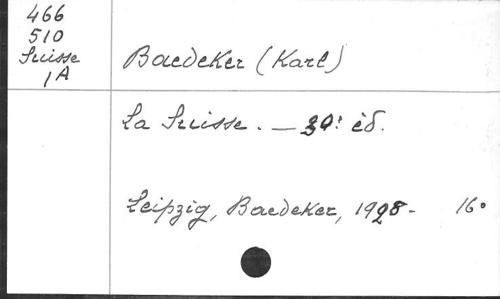 466
510
Suisse
1A
Baedeker (Karl)
La Suisse. — 30e éd.
Leipzig, Baedeker, 1928 - 16°